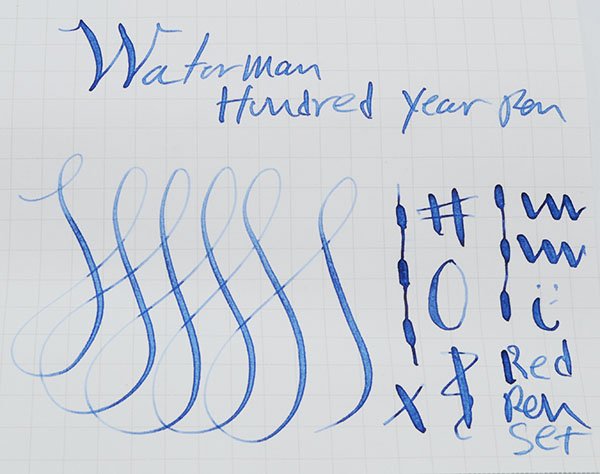 Waterman
Hundred Year Pen
#
x
Red
Pen
Set